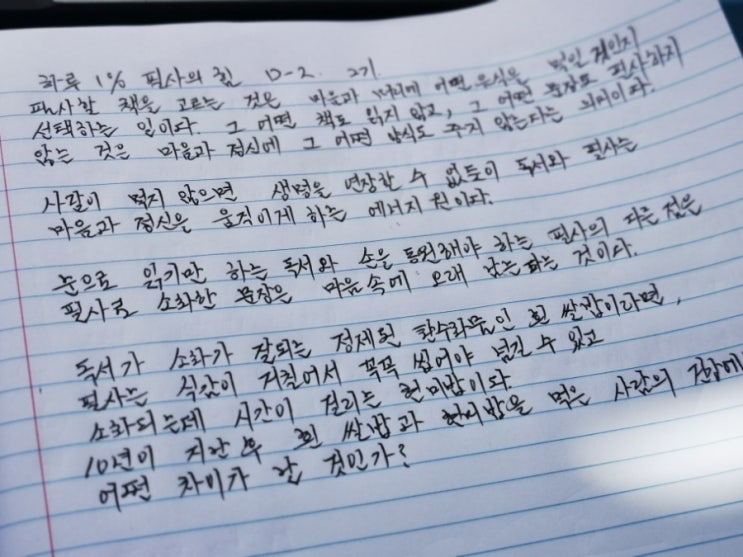 하루 1% 필사의 힘 D-2. 27.
필사할 책을 고르는 것은 마음과 뇌에 어떤 음식을 먹일 것인지
선택하는 일이다. 그 어떤 책도 읽지 않고, 그 어떤 문장도 필사하지
않는 것은 마음과 정신에 그 어떤 양식도 주지 않는다는 의미이다.
사람이 먹지 않으면 생명을 연장할 수 없듯이 독서와 필사는
마음과 정신을 움직이게 하는 에너지원이다.
눈으로 읽기만 하는 독서와 손을 동원해야 하는 필사의 다른 점은
필사로 소화한 문장은 마음 속에 오래 남는 것이다.
독서가 소화가 잘되는 정제된 탄수화물인 흰 쌀밥이라면,
필사는 식감이 거칠어서 꼭꼭 씹어야 넘길 수 있고
소화되는데 시간이 걸리는 현미밥이다
10년이 지난 후 흰 쌀밥과 현미밥을 먹은 사람의 건강에
어떤 차이가 날 것인가?